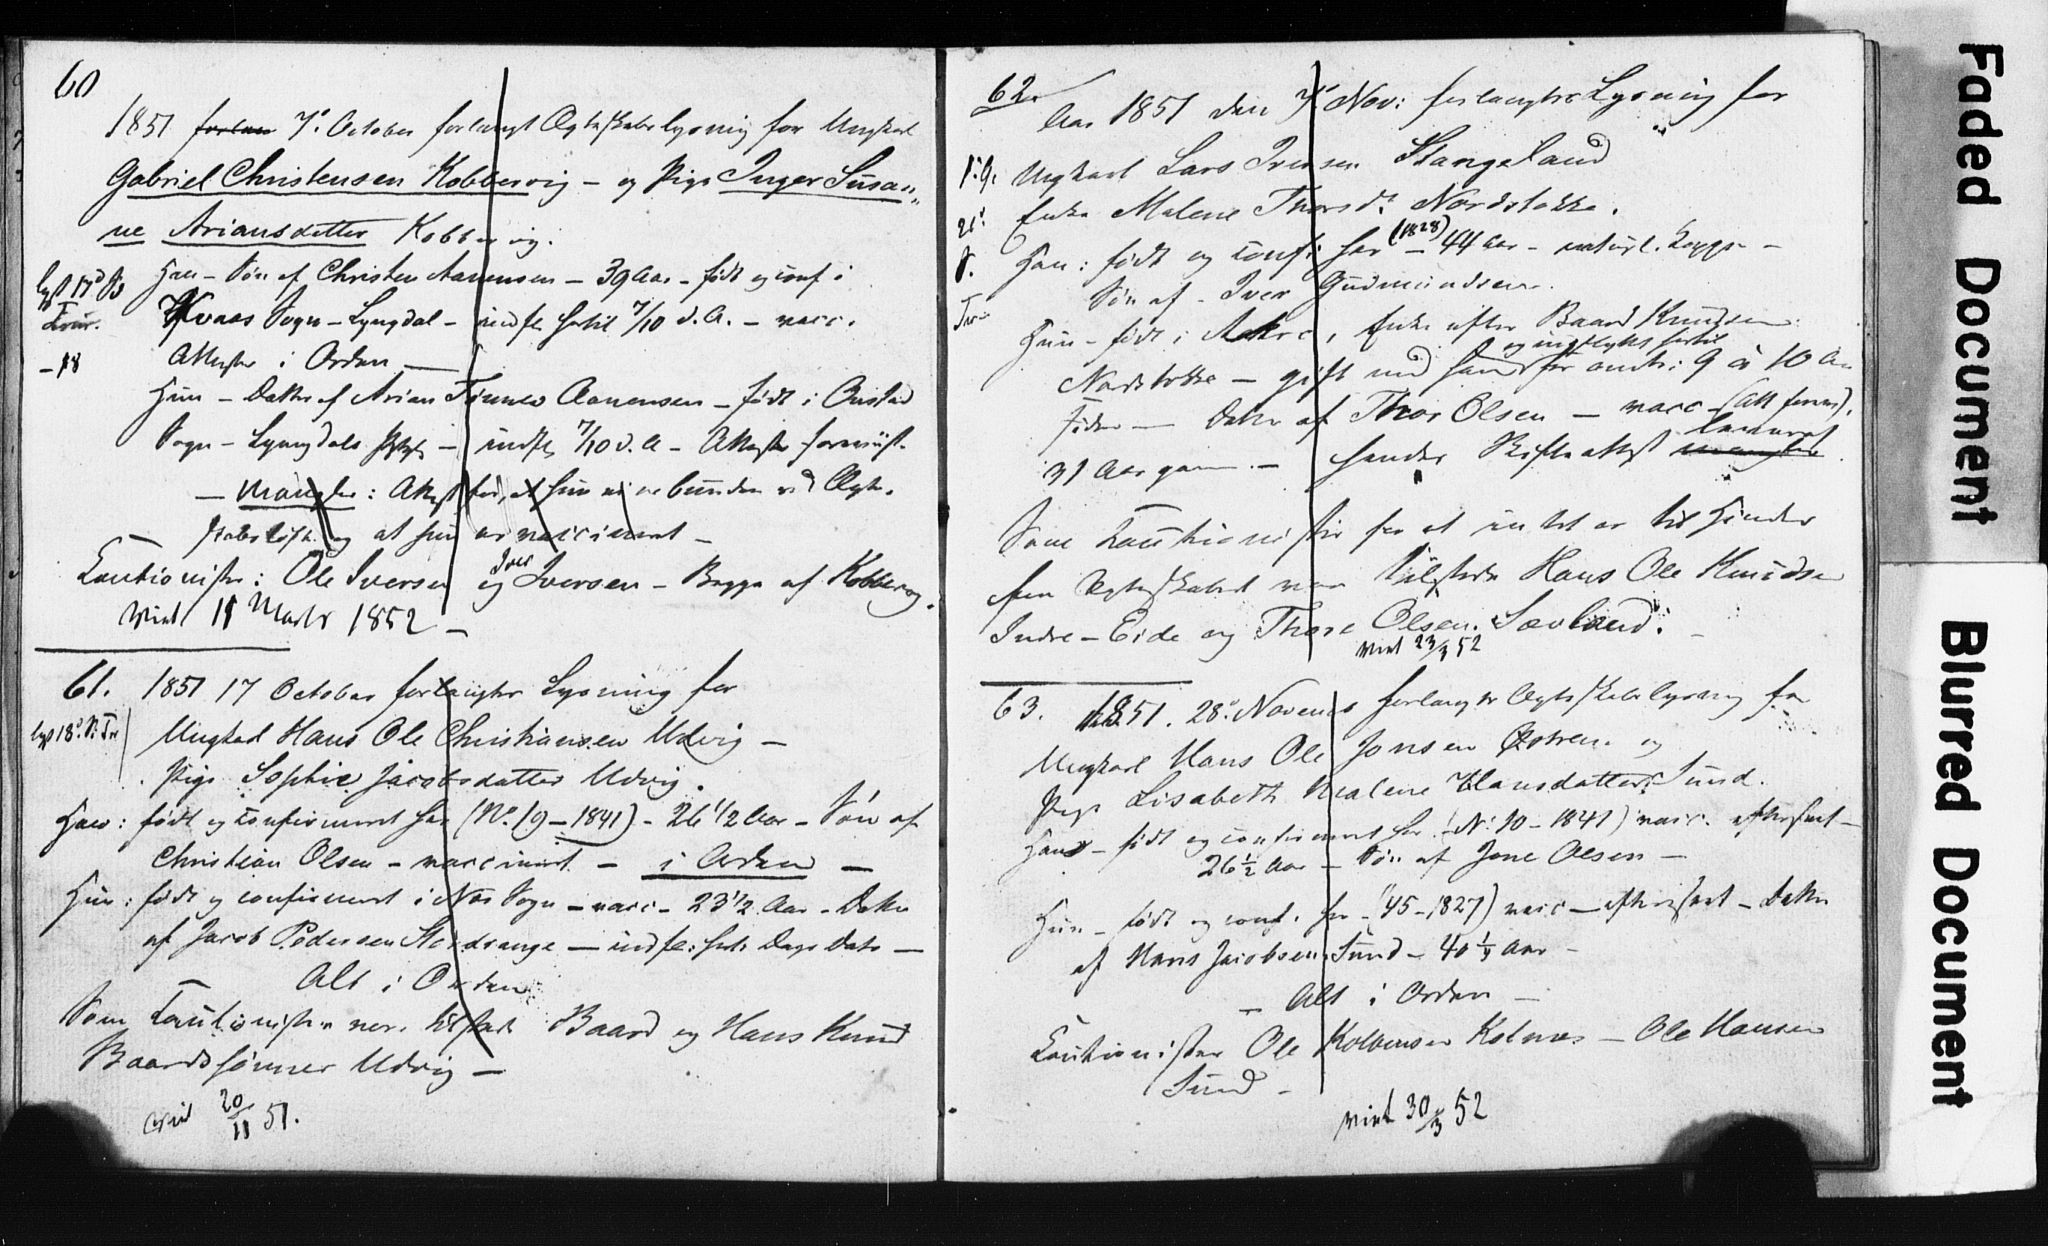 60
1851 forlan 7de October forlangt Ægteskabslysning for Ungkarl
Gabriel Christensen Kobbervig - og Pige Inger Susan-
ne Ariansdatter Kobbervig.
Han - Søn af Christen Aanensen - 39 Aar - født og conf i
lyst 17d
Kvaas Sogn - Lyngdal - indfl. hertil 7/10 d.A. - vacc.
- 18
Attester i Orden -
Hun - Datter af Arian Tønnes Aanensen - født i Austad
Sogn - Lyngdals - indfl 7/10 d.A - Attester
- Mangler: Attest for, at hun ei er bunden ved Ægte-
skabsløfte og at hun er vaccineret -
Cautionister: Ole Iversen og Iver Iversen - Begge af Kobbervig.
Viet 11 Marts 1852 -
61. 1851 17 October forlangtes Lysning for
Ungkarl Hans Ole Christiansen Udvig -
Pige Sophie Jacobsdatter Udvig.
Han: født og confirmeret her (No. 19 - 1841) - 26 1/2 Aar - Søn af
Christian Olsen - vaccineret - i Orden -
Hun: født og confirmeret i Næs Sogn - vacc - 23 1/2 Aar - Datter
af Jacob Pedersen - indfl: Dags Dato -
Alt i Orden
Som Cautionister vare tilstede Baard og Hans Knud
Baardssønner Udvig -
Viet 20/11 51.
62.
Aar 1851 den 7de Nov: forlangtes Lysning for
Ungkarl Lars Iversen Stangeland
Enke Malene Thorsdt. Nordstokke.
Han: født og conf: her (1828) - 44 Aar - naturl. Kopper -
Søn af - Iver Gudmundsen
Hun - født i Aakre, Enke efter Baard Knudsen
Nordstokke - gift med ham og indflyttet hertil for omtr: 9 à 10 Aar
siden - Datter af Thor Olsen - vacc - (Att. ).
31 Aar gam. - hendes Skifteattest mangler leveret
Som Cautionister for at intet er til Hinder
for Ægteskabet var tilstede Hans Ole Knudsen
Indre-Eide og Thore Olsen Sævland.
Viet 23/3 52
63. 1851. 28de Novemb forlangtes Ægteskabslysning for
Ungkarl Hans Ole Jonsen Østrem og
Pige Lisabeth Malene Hansdatter Sund.
Han - født og confirmeret her (No 10 - 1841) vacc.
26 1/2 Aar - Søn af Jone Olsen -
Hun - født og conf. her - (45 - 1827) vacc - - Datter
af Hans Jacobsen Sund - 40 1/4 Aar -
- Alt i Orden -
Cautionister Ole Kolbensen Kolnæs - Ole Hansen
Sund -
Viet 30/3 52
Faded Document
Blurred Document